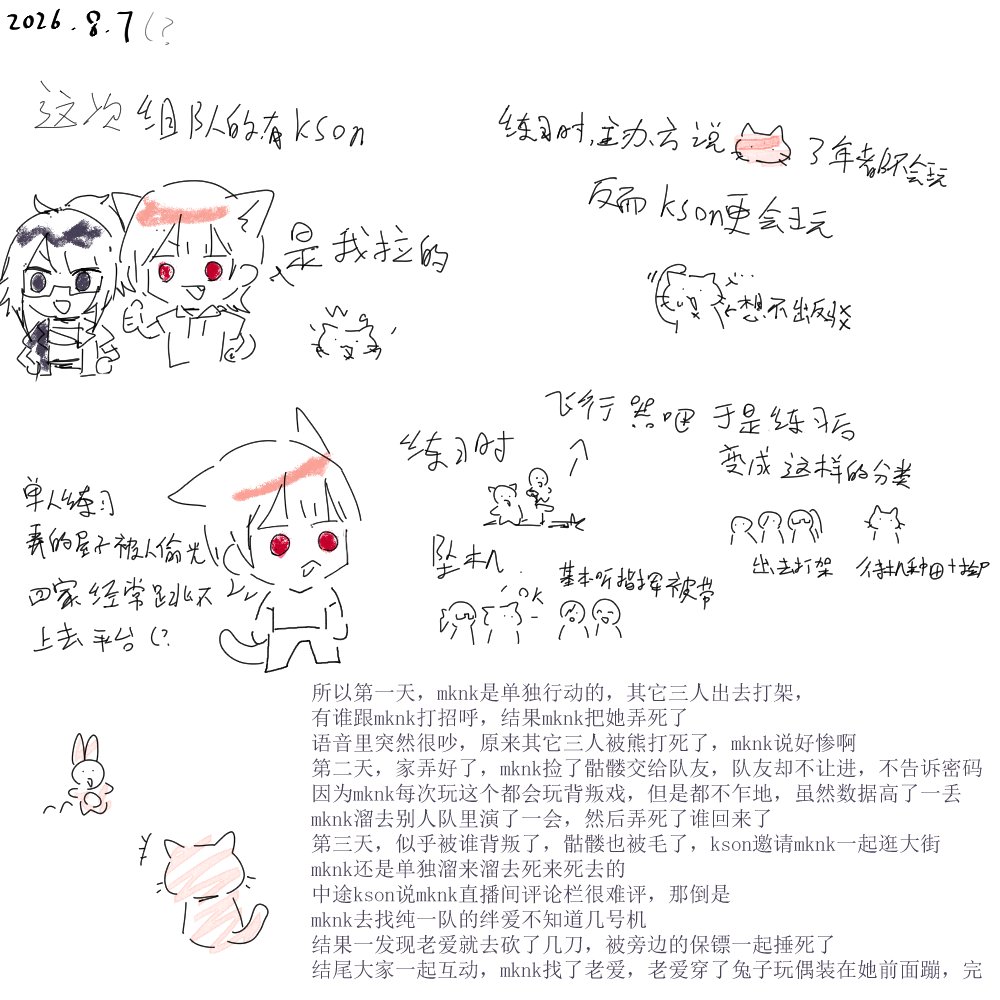 2026.8.7(?
这次组队的有kson
是我拉的
练习时,主办方说 了年者都不会玩
反而kson更会玩
想不出反驳
单人练习
我的屋子被人偷光
回家经常跳不
上去平台(?
练习时
飞行器吧
坠机
OK
基本听指挥被带
于是练习后
变成这样的分类
出去打架
待机种田+捡尸
所以第一天，mknk是单独行动的，其它三人出去打架，
有谁跟mknk打招呼，结果mknk把她弄死了
语音里突然很吵，原来其它三人被熊打死了，mknk说好惨啊
第二天，家弄好了，mknk捡了骷髅交给队友，队友却不让进，不告诉密码
因为mknk每次玩这个都会玩背叛戏，但是都不乍地，虽然数据高了一丢
mknk溜去别人队里演了一会，然后弄死了谁回来了
第三天，似乎被谁背叛了，骷髅也被毛了，kson邀请mknk一起逛大街
mknk还是单独溜来溜去死来死去的
中途kson说mknk直播间评论栏很难评，那倒是
mknk去找纯一队的绊爱不知道几号机
结果一发现老爱就去砍了几刀，被旁边的保镖一起捶死了
结尾大家一起互动，mknk找了老爱，老爱穿了兔子玩偶装在她前面蹦，完